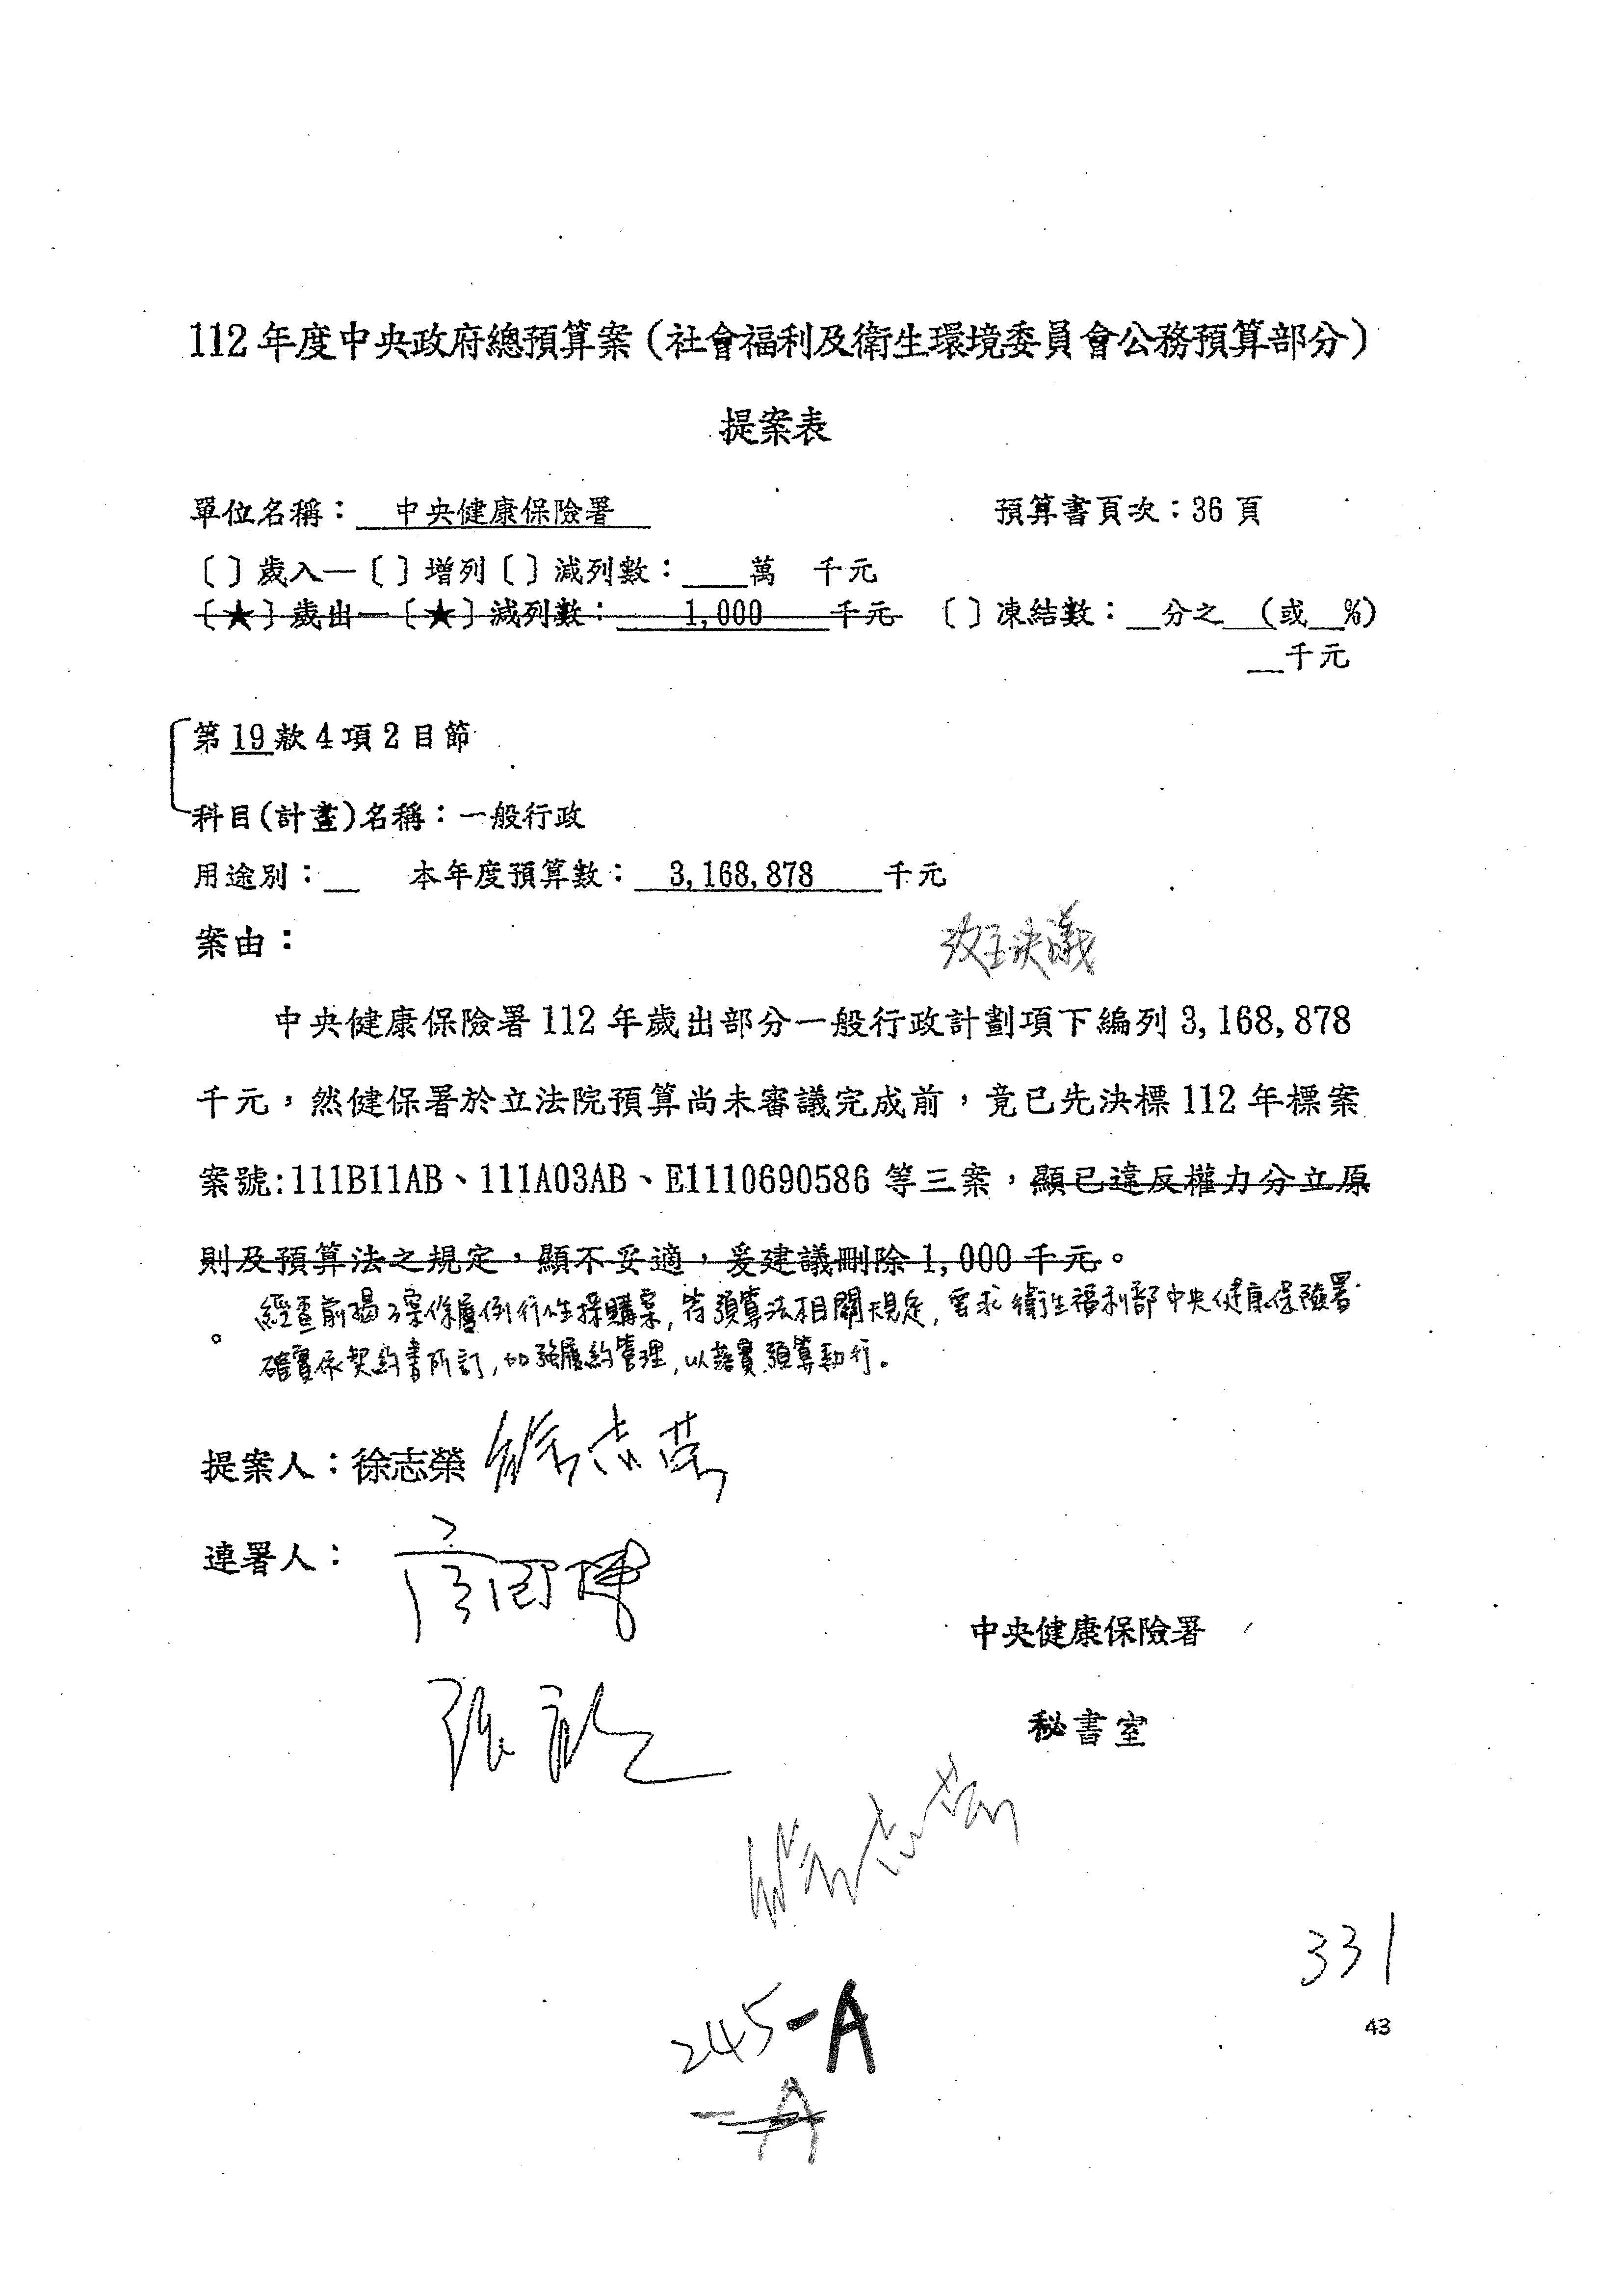 112年度中央政府總預算案(社會福利及衛生環境委員會公務預算部分)
提案表
單位名稱： 中央健康保險署 預算書頁次：36頁
〔〕歲入—〔〕增列〔〕減列數：___萬 千元
〔★〕歲出—〔★〕減列數： 1,000 千元 〔〕凍結數：__分之__(或__%)
__千元
第19款4項2目節
科目(計畫)名稱：一般行政
用途別：__ 本年度預算數： 3,168,878 千元
案由：
改主決議
中央健康保險署112年歲出部分一般行政計劃項下編列3,168,878
千元，然健保署於立法院預算尚未審議完成前，竟已先決標112年標案
案號:111B11AB、111A03AB、E1110690586等三案，顯已違反權力分立原
則及預算法之規定，顯不妥適，爰建議刪除1,000千元。
經查前揭3案係屬例行性採購案,符預算法相關規定,要求衛生福利部中央健康保險署
確實依契約書所訂,加強履約管理,以落實預算執行。
提案人：徐志榮 徐志榮
連署人：
中央健康保險署
秘書室
徐志榮
331
245-A
43
-A